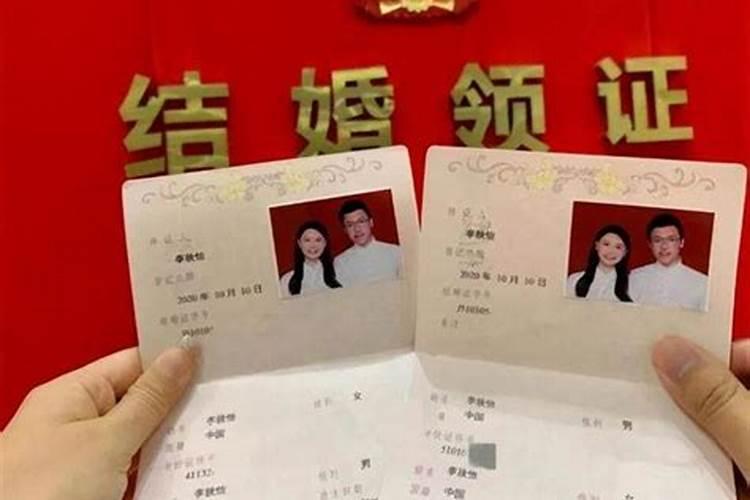 结婚领证
持证人
李轶怡
登记日期
2020年10月10日
结婚证字号
J51010
持证人
李轶怡
登记日期
2020年10月10日
结婚证字号
J510105
备注
李轶怡
性别 女
国籍 中国
身份证件号
41132
李轶怡
性别 男
出生日期
姓名 李轶怡
性别 男
国籍 中国
身份证件号
51010
姓名 李轶怡
国籍 中国